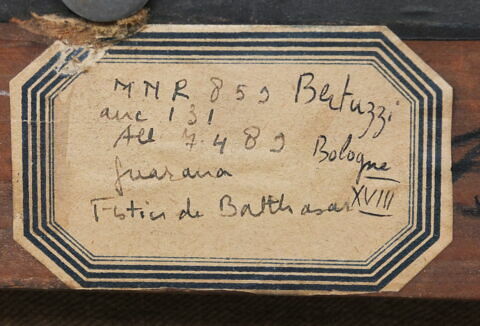 MNR 859 Bertuzzi
anc 131
All 7489 Bologne
Guarana XVIII
Festin de Balthasar